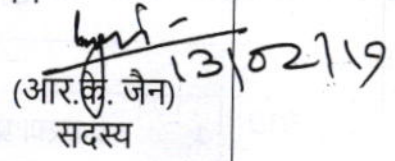 13/02/19
(आर.के. जैन)
सदस्य